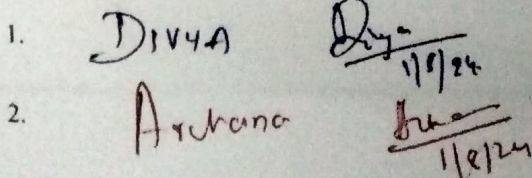 1. DIVYA Divya
1/8/24
2. Archana
1/8/24